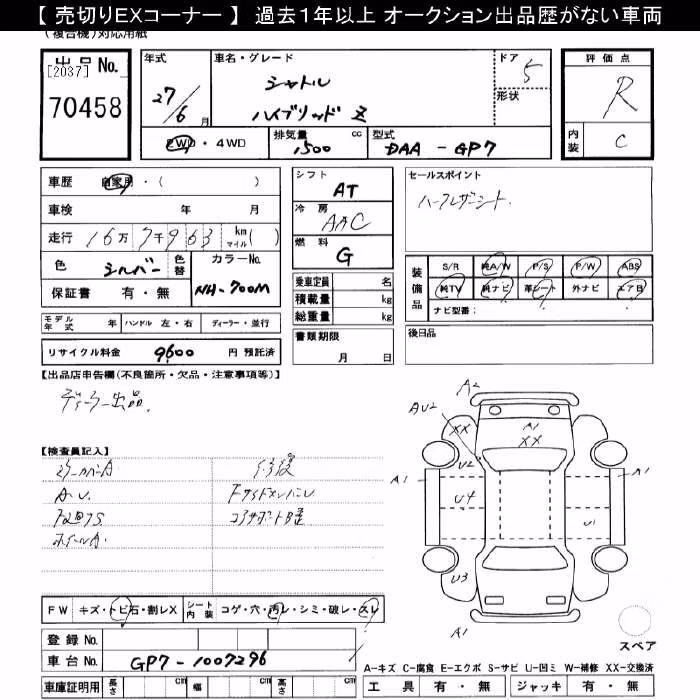 【 売切りEXコーナー 】 過去1年以上 オークション出品歴がない車両
(複合機)対応用紙
出品No.
[2037]
70458
年式
27/6月
車名・グレード
シャトル
ハイブリッド Z
ドア
5
形状
評価点
R
内装
C
2WD・4WD
排気量 cc
1500
型式
DAA - GP7
車歴 自家用・( )
車検 年 月
走行 16万7千963 km マイル( )
色 シルバー 色替
カラーNo.
NH-700M
保証書 有・無
シフト
AT
冷房
AAC
燃料
G
セールスポイント
ハーフレザーシート.
装備品
S/R 純A/W P/S P/W ABS
純TV 純ナビ 革シート 外ナビ エアB
ナビ型番:
乗車定員 名
積載量 kg
総重量 kg
モデル年式 年 ハンドル 左・右 ディーラー・並行
リサイクル料金 9600 円 預託済
書類期限
月 日
後日品
【出品店申告欄(不良箇所・欠品・注意事項等)】
ディーラー出品.
【検査員記入】
A U.
ホイールA.
修復
FサイドメンバーU
コアサポート
A2
AU2
XX
A1
XX
U2
A1
U4
U1
A1
U3
A1
スペア
FW キズ・トビ石・割レX シート内装 コゲ・穴・汚レ・シミ・破レ・スレ
登録No.
車台No. GP7-1007296
車庫証明用 長さ cm 幅 cm 高さ cm
A－キズ C－腐食 E－エクボ S－サビ U－凹ミ W－補修 XX－交換済
工具 有・無 ジャッキ 有・無